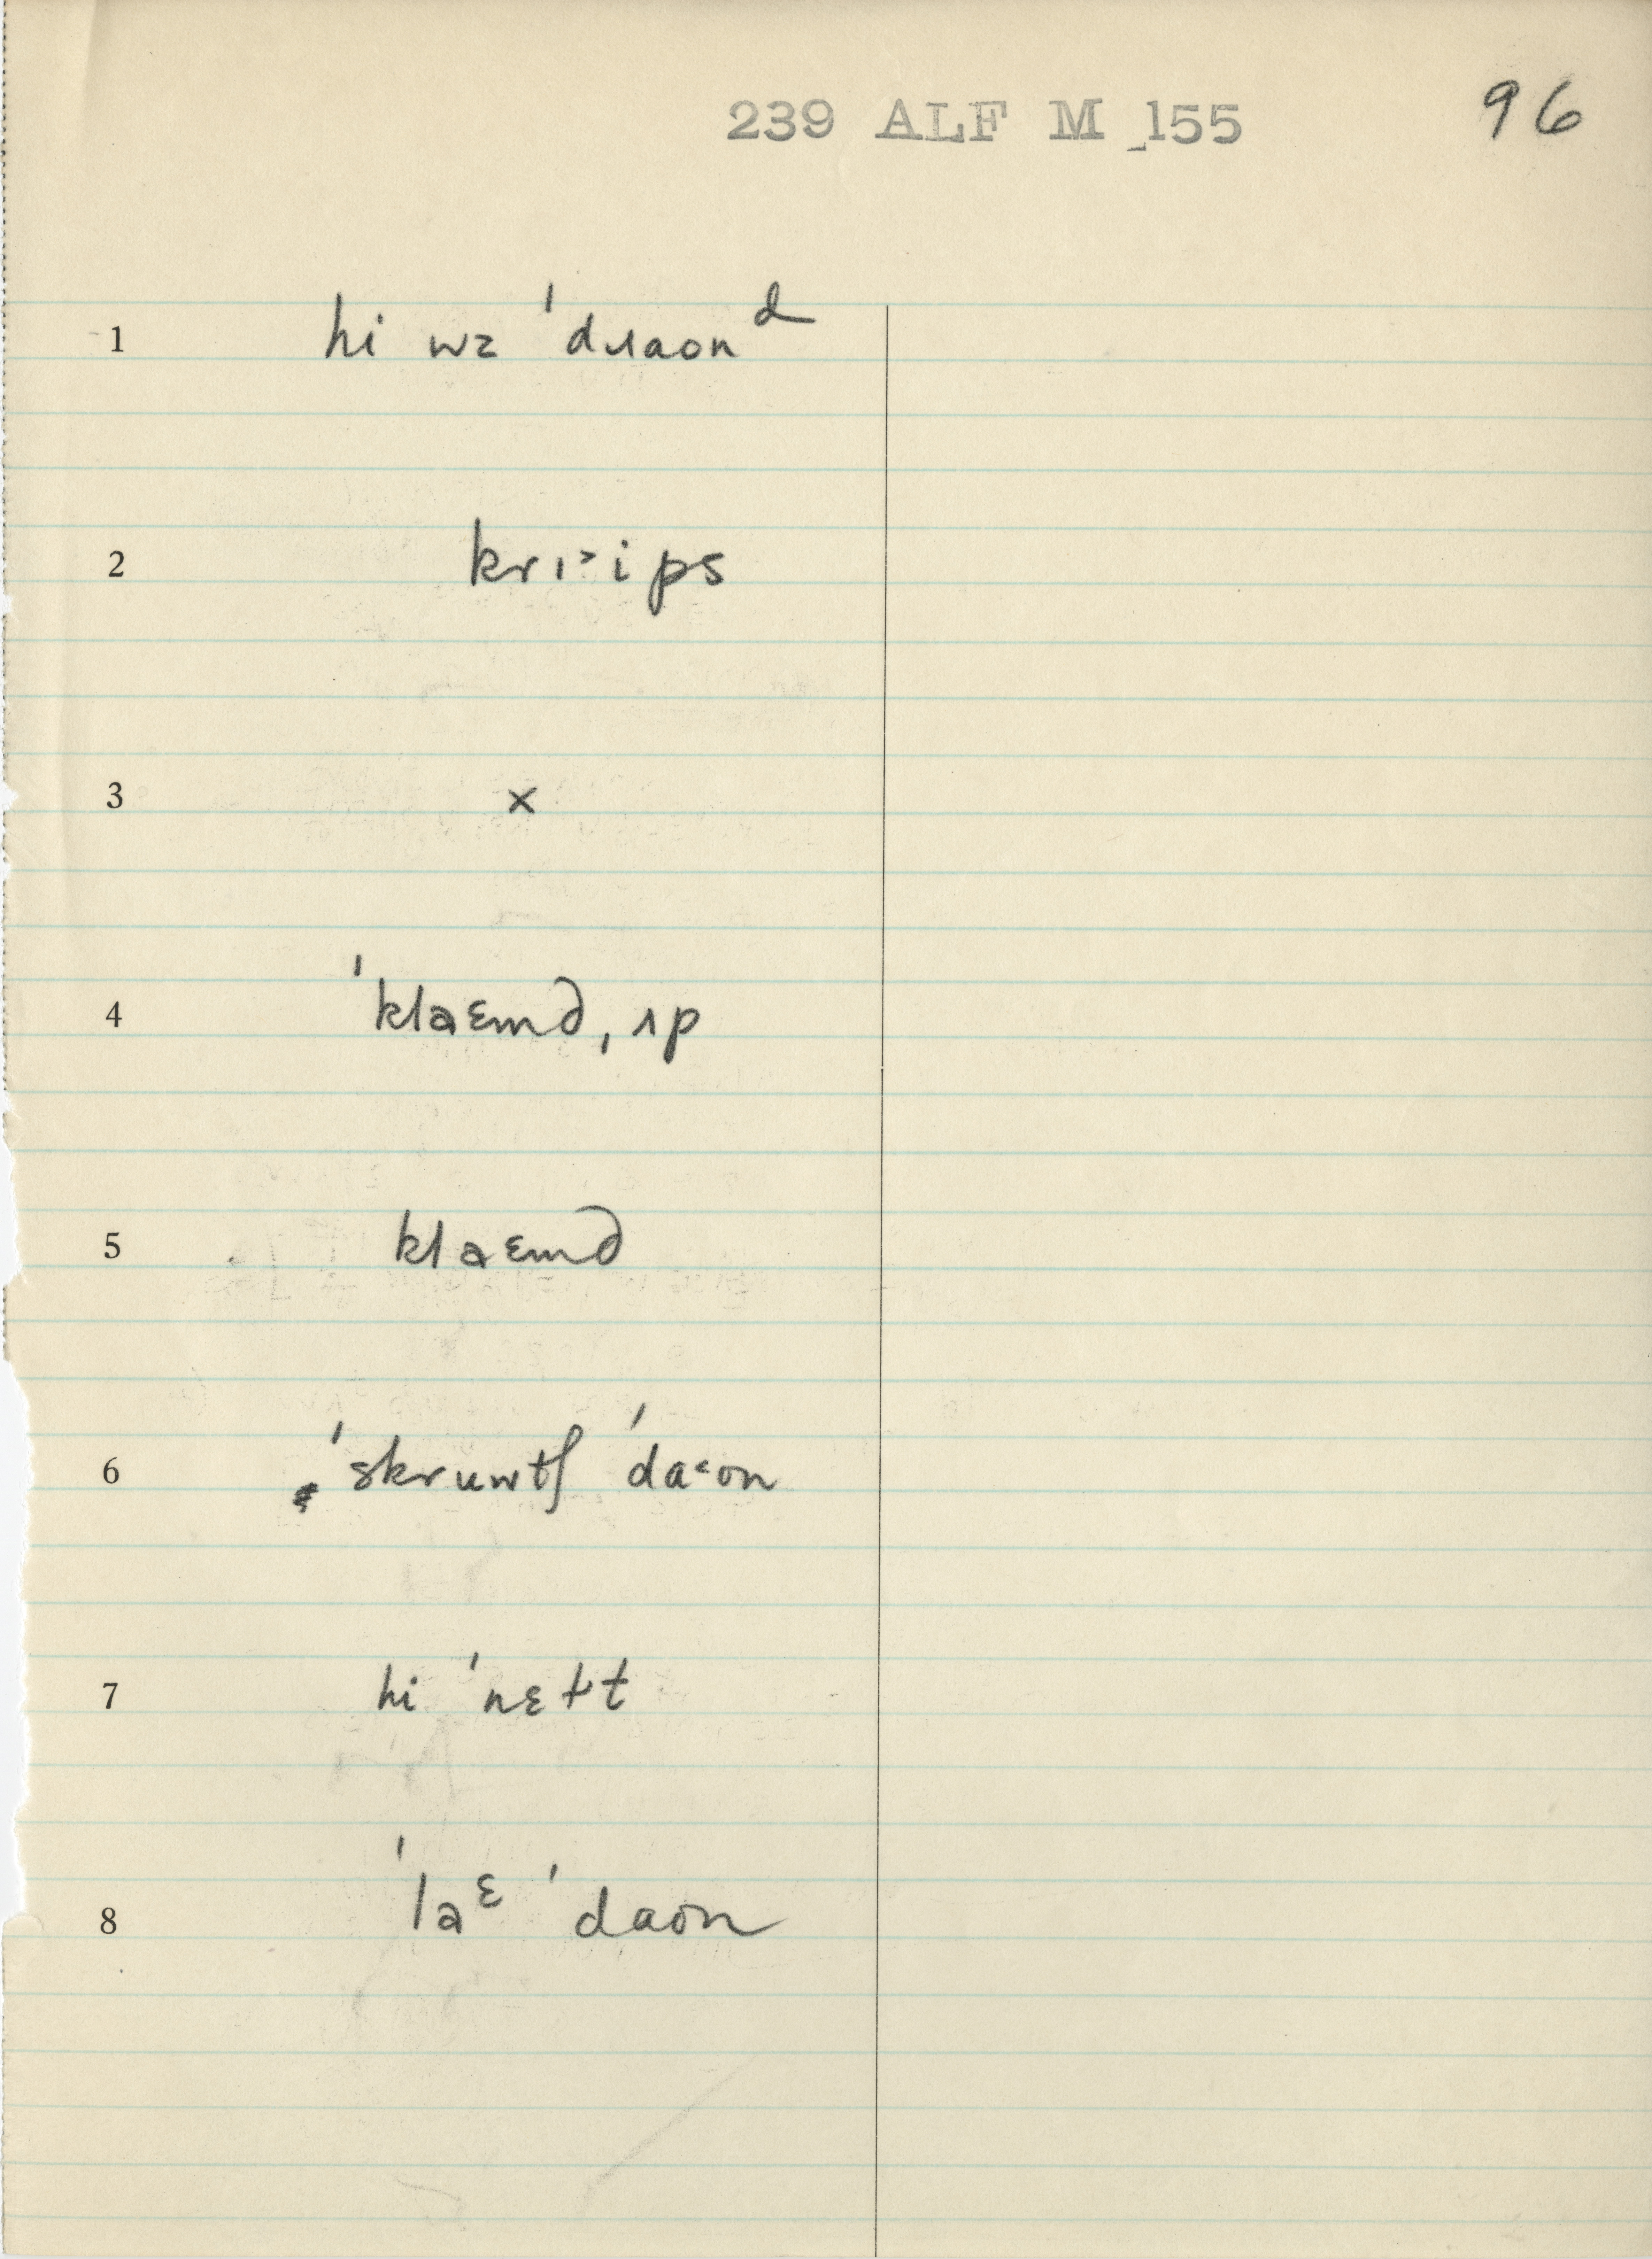 239 ALF M 155
96
1 hi wz ˈdɹaonᵈ
2 krɪ˃ips
3 ×
4 ˈklaɛmd ˌʌp
5 klaɛmd
6 ˈskruwtʃ ˈda˂on
7 hi ˈnɛɫt
8 ˈlaᵋ ˈdaon